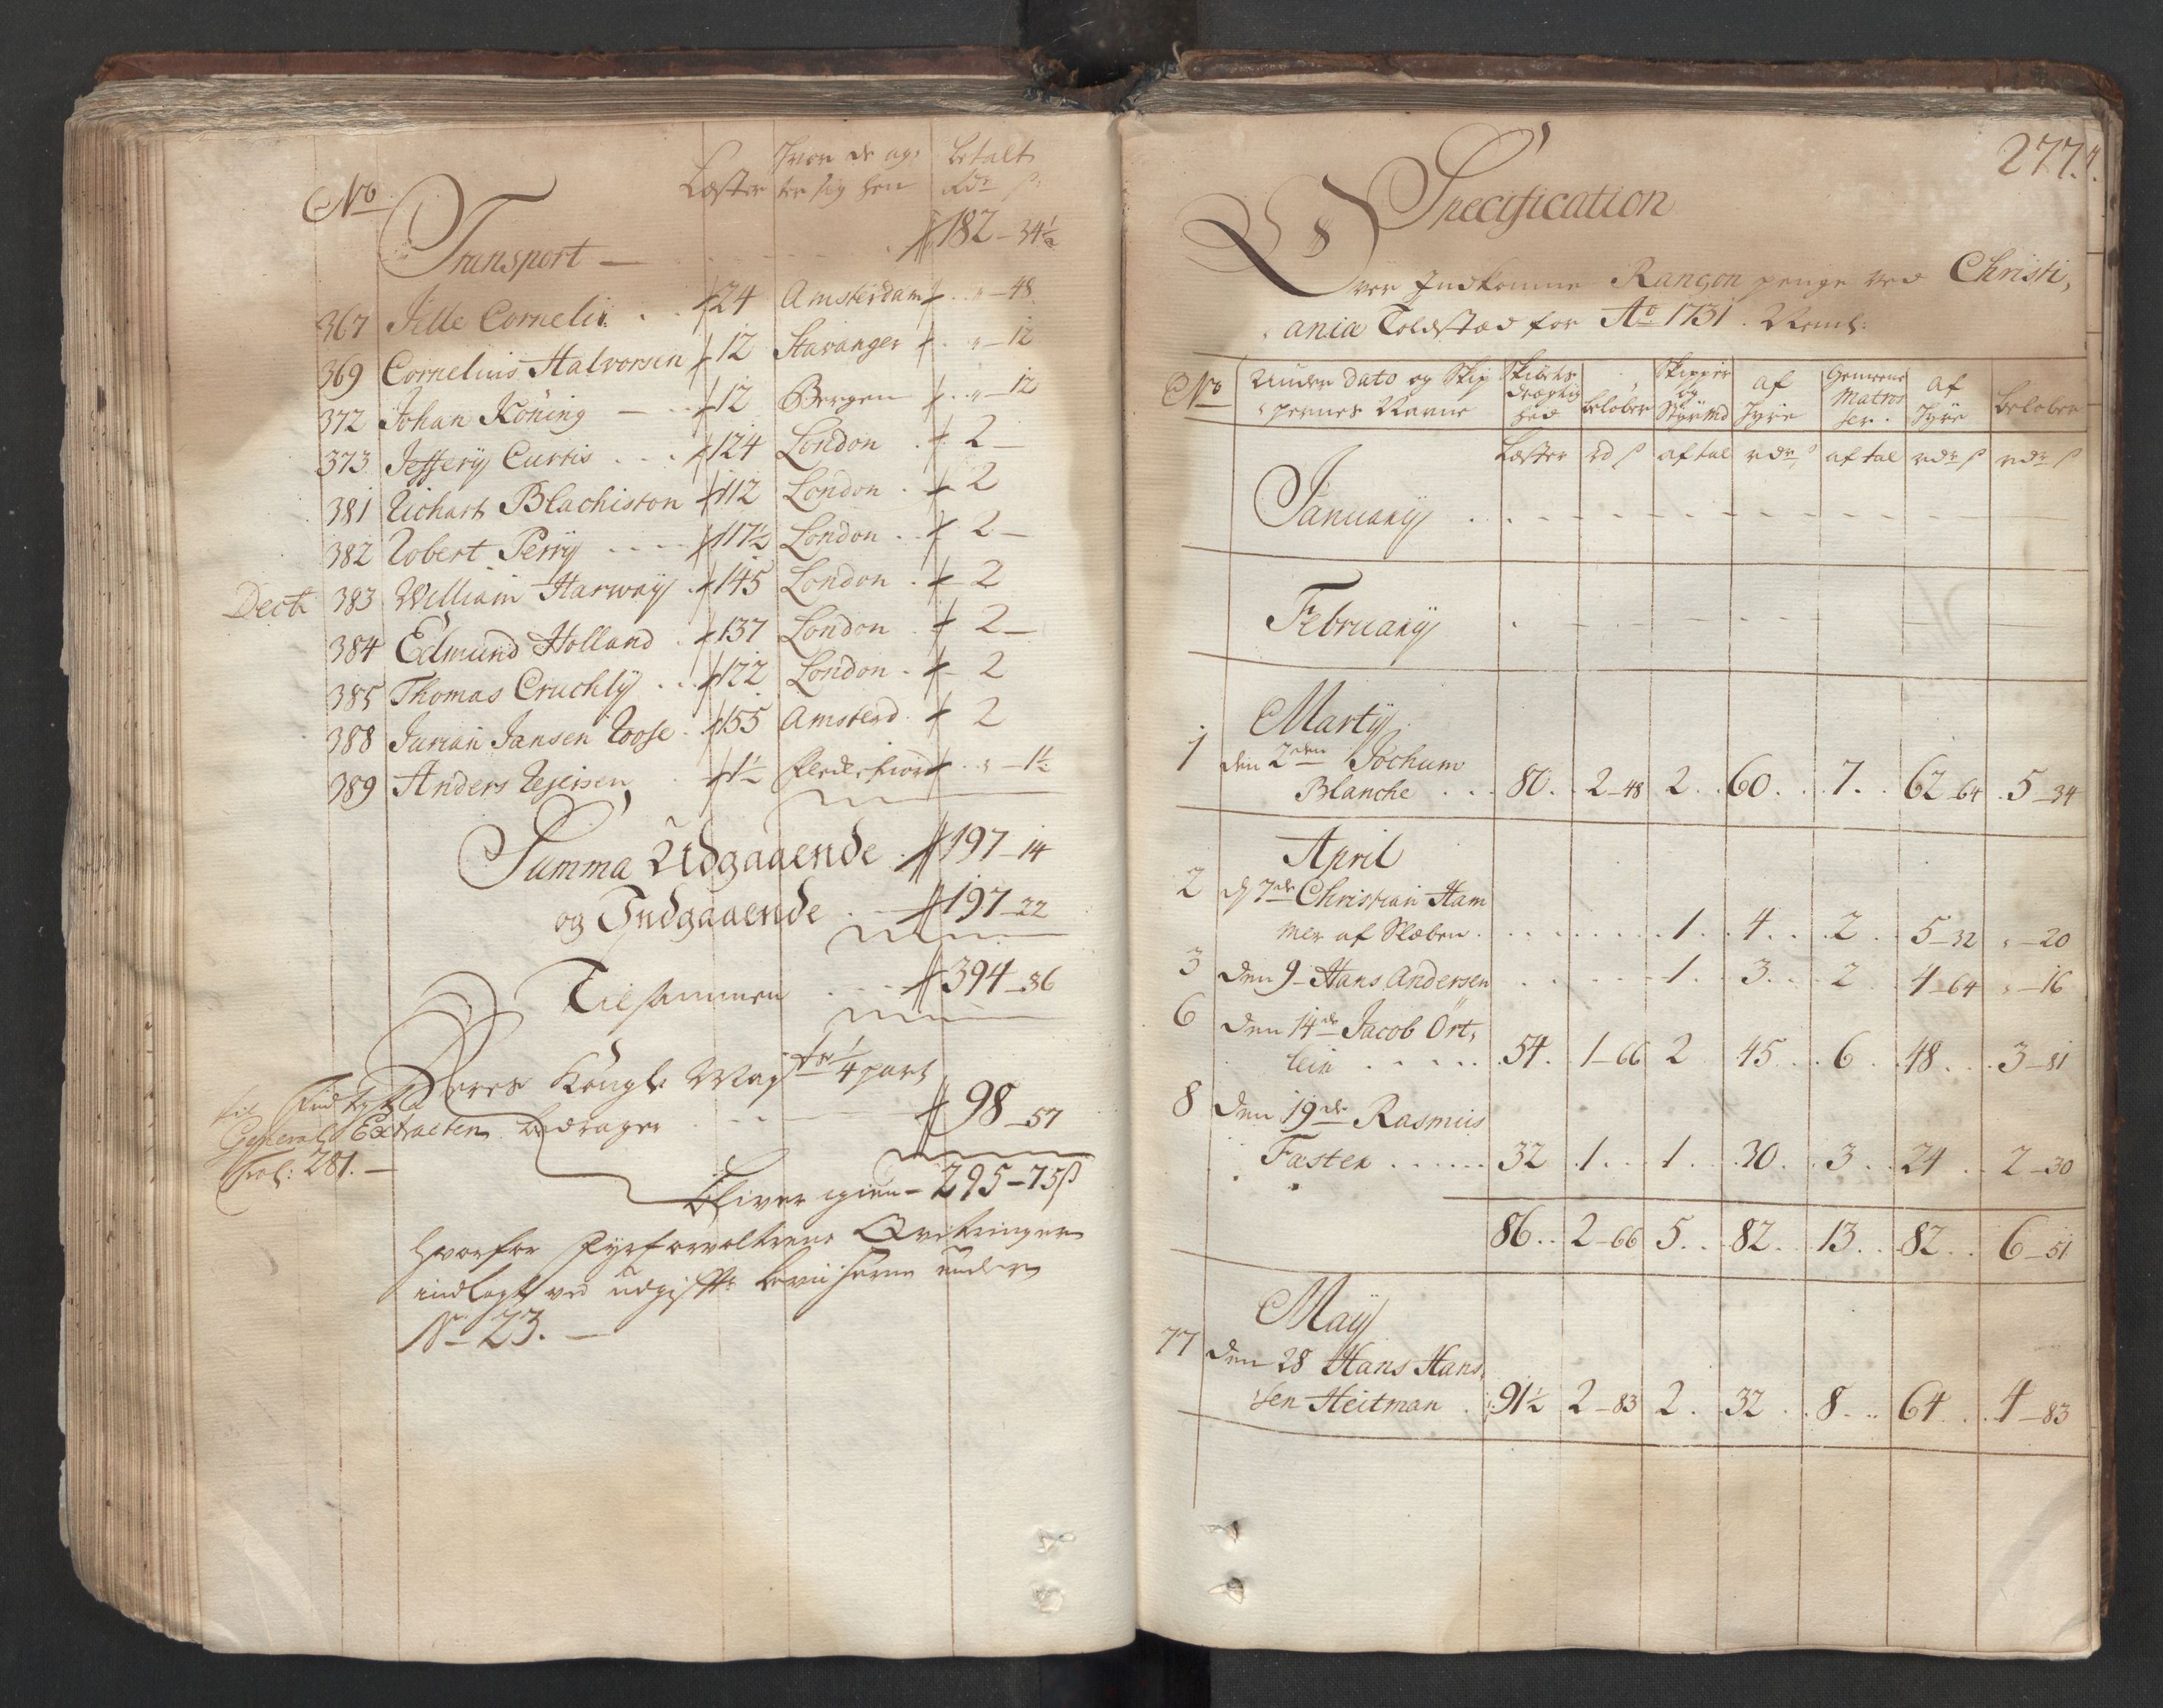 No Læster hvor de ag, betalt
ter sig hen Rdr ß
Transport — 182 – 34½
367 Jelle Cornelis 24 Amsterdam „ – 48
369 Cornelius Halvorsen 12 Stavanger „ – 12
372 Johan Köning — 12 Bergen „ – 12
373 Jefferÿ Curtis 124 London 2 –
381 Richart Blachiston 112 London 2
382 Robert Perrÿ 117½ London 2 –
Decb 383 William Harwaÿ 145 London 2
384 Edmund Holland 137 London 2 –
385 Thomas Cruchlÿ 122 London 2
388 Jurian Jansen Roose 155 Amsterd. 2
389 Anders Rejersen 1½ „ – 1½
Summa Udgaaende 197 – 14
og Indgaaende 197 – 22
Tilsammen 394 – 36
Deres Kongl. May 1/4 part
bedrager 98 – 57
General Extracten
Fol: 281. –
bliver igien – 295 – 75 ß
hvorfor Fyrforvalterens Qvitteringer
indlagt ved udgifts beviserne under
No 23. –
277.
Specification
Over Indkomne Rançon penge ved Christi,
ania Toldstæd for Ao 1731. Neml:
No Under dato og Skip
pernes Navne Skibets
drægtig
hed beløber Skipper
og
Styrmd af
Hyre Gemeene
Matros
ser. af
Hyre beløber
Læster rd ß aftal rdr ß aftal rdr ß rdr ß
Januarÿ
Februarÿ
Martÿ
1 den 2den Jochum
Blanche 80. 2 – 48 2. 60. 7. 62 – 64 5 – 34
April
2 d 7de Christian Ham
mer af Slæben 1. 4. 2. 5 – 32 „ – 20
3 den 9 – Hans Andersen 1. 3. 2 4 – 64 „ – 16
6 den 14de Jacob Ört,
lein 54. 1 – 66 2 45. 6. 48. 3 – 81
8 den 19de Rasmus
Faster 32 1. 1. 30. 3. 24 2 – 30
86. 2 – 66 5. 82. 13. 82. 6 – 51
Maÿ
77 den 28 Hans Hans,
sen Heitman 91½ 2 – 83 2. 32 8 64 4 – 83